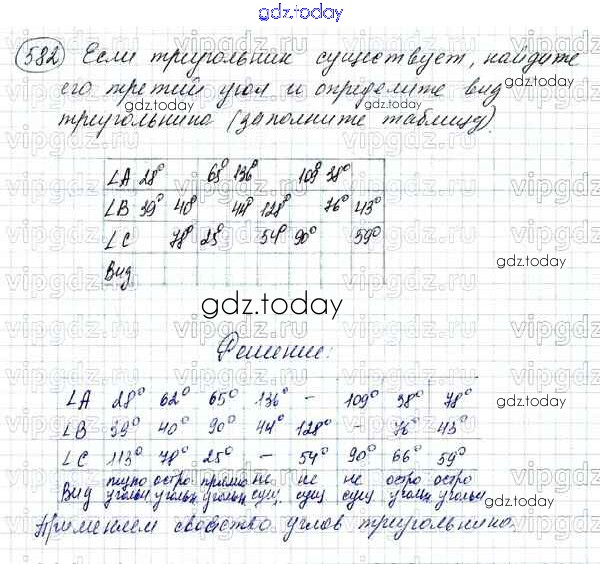 gdz.today
582 Если триугольник существует, найдите
его третий угол и определите вид
gdz.today gdz.today
триугольника (заполните таблицу).
∠A 28° 65° 136° 109° 38°
∠B 39° 40° 44° 128° 76° 43°
∠C 78° 25° 54° 90° 59°
Вид
gdz.today
gdz.today
Решение:
∠A 28° 62° 65° 136° – 109° 38° 78°
∠B 39° 40° 90° 44° 128° – 76° 43°
∠C 113° 78° 25° – 54° 90° 66° 59°
тупо остро прямо не не не остро остро
Вид угольн угольн угольн сущ. сущ сущ угольн угольн
gdz.today
Применяем свойство углов триугольника.
gdz.today